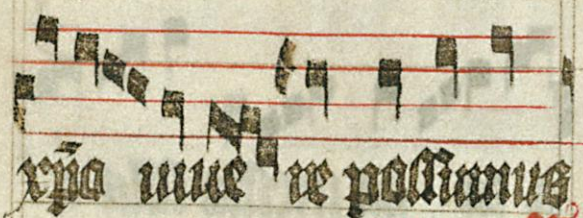 xp̄a uiue re possimus